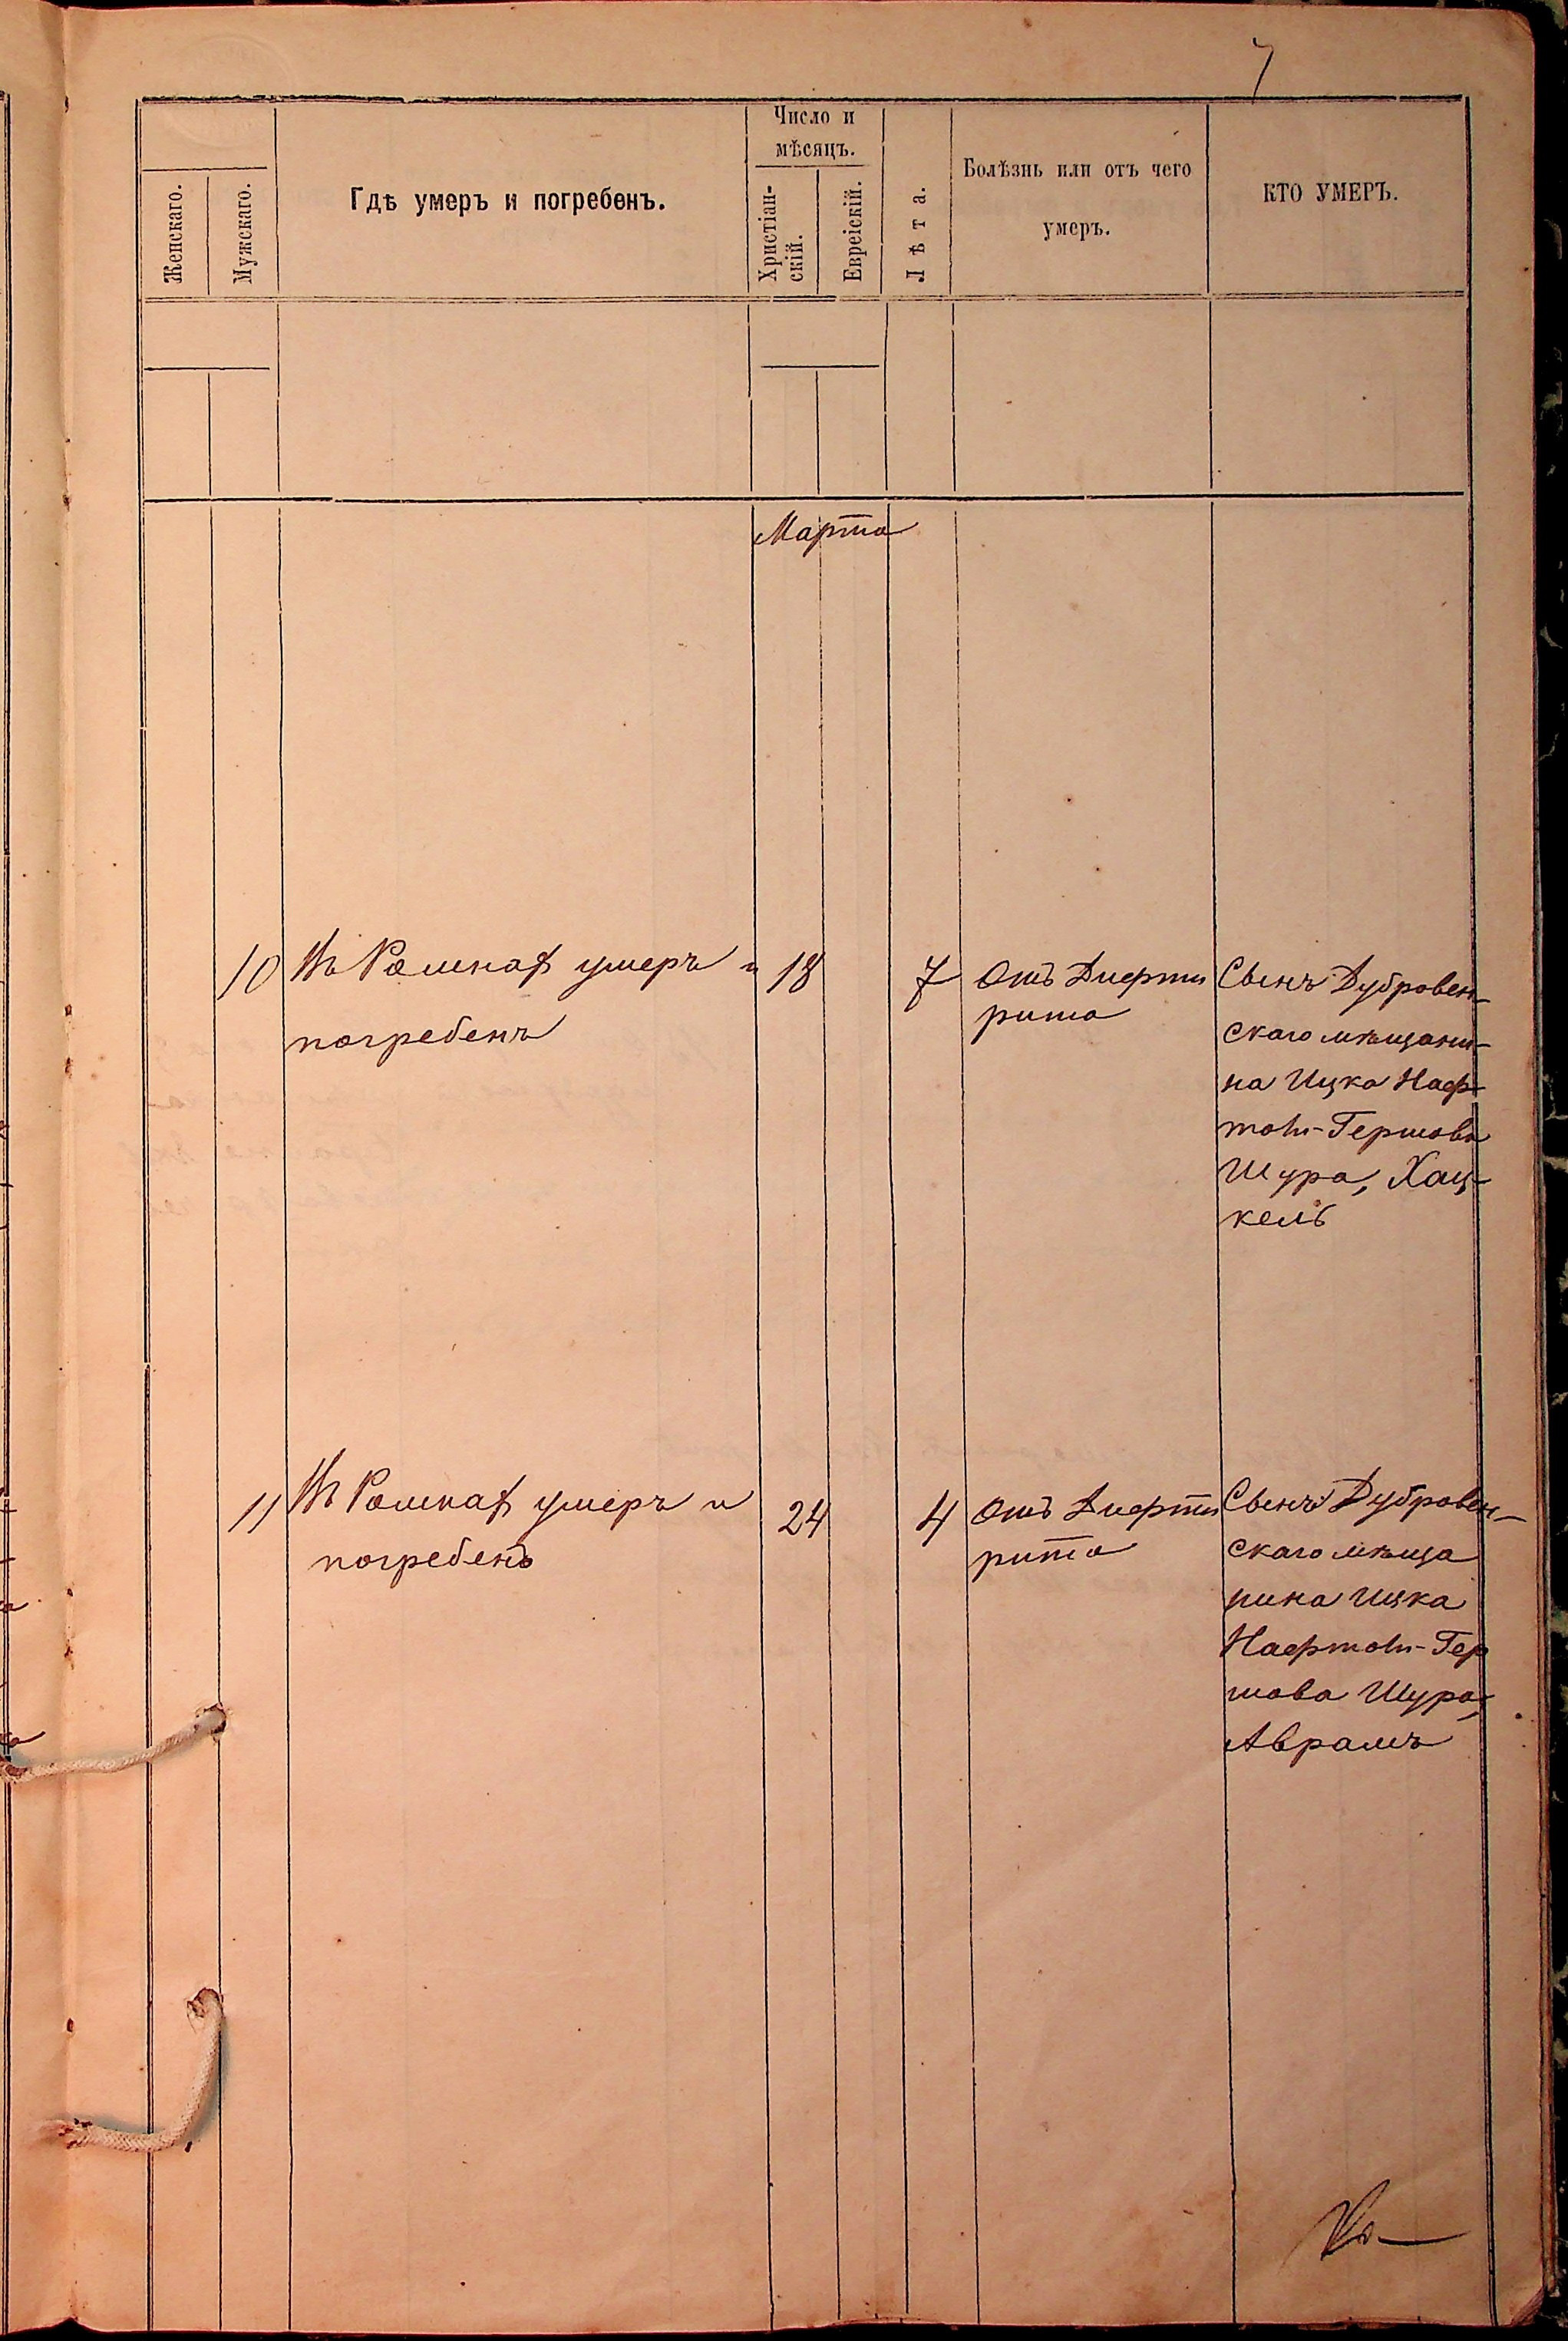 7
Число и
мѣсяцъ.
Женскаго.
Мужскаго.
Гдѣ умеръ и погребенъ.
Христіан-
скій.
Еврейскій.
Лѣта.
Болѣзнь или отъ чего
умеръ.
КТО УМЕРЪ.
Марта
10
Въ Ромнах умеръ и
погребенъ
18
7
Отъ Дифти
рита
Сынъ Дубровен-
скаго мѣщани-
на Ицка Наф-
толи-Гершова
Шура, Хац-
кель
11
Въ Ромнах умеръ и
погребенъ
24
4
Отъ Дифти
рита
Сынъ Дубровен-
скаго мѣща
нина Ицка
Нафтоли-Гер
шова Шура,
Аврамъ